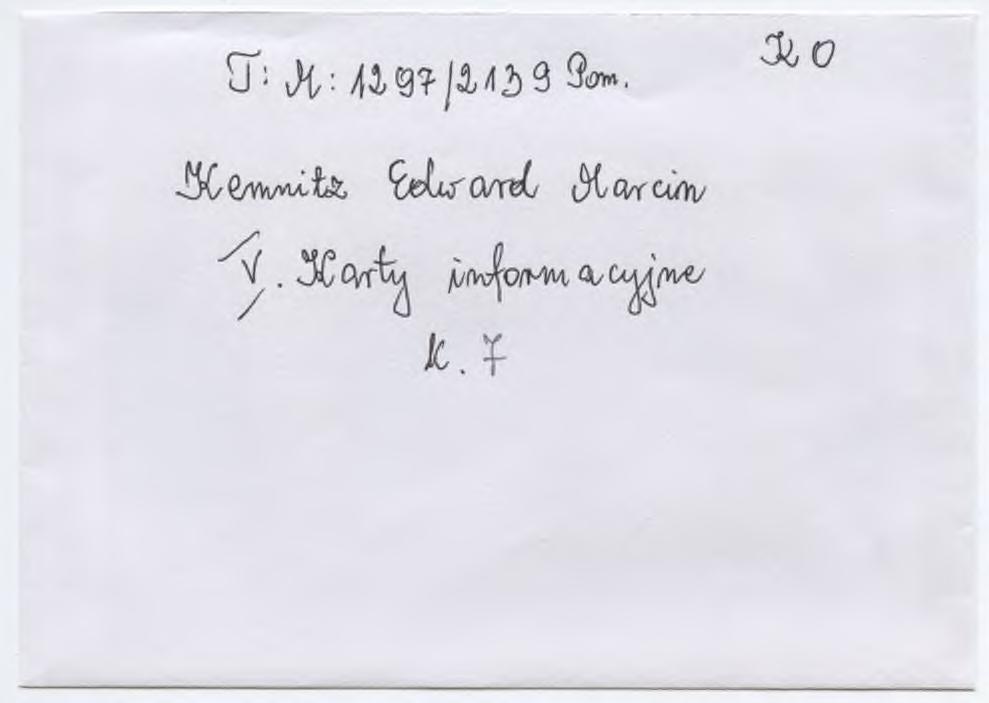 K O
T: M: 1297/2139 Pom.
Kemnitz Edward Marcin
V. Karty informacyjne
k. 7